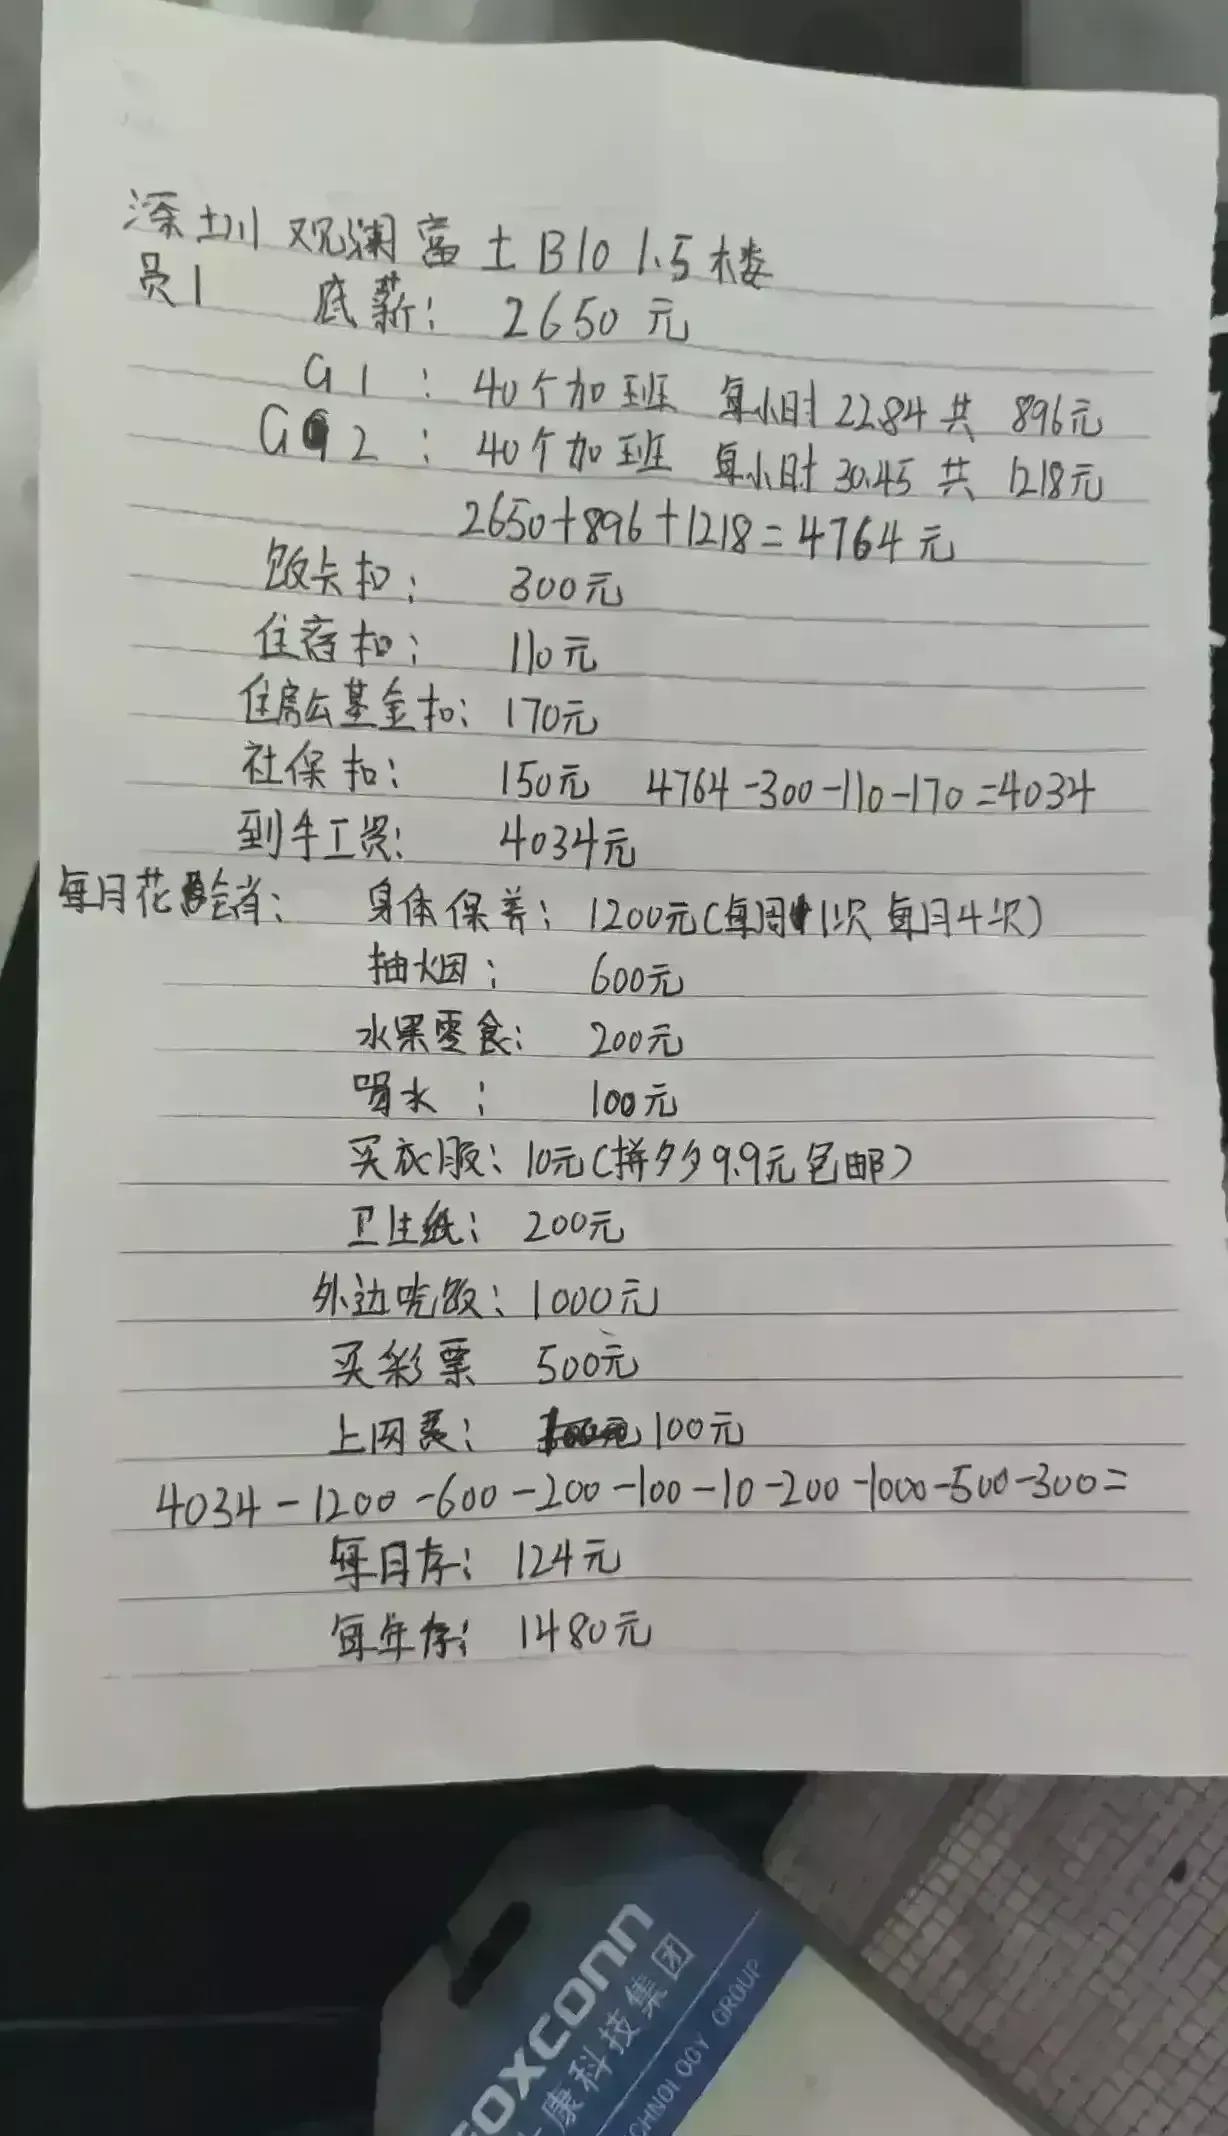 深圳观澜富士B10 1.5楼
员1 底薪: 2650元
G1: 40个加班 每小时22.84共 896元
G2: 40个加班 每小时30.45共 1218元
2650+896+1218=4764元
饭卡扣: 300元
住宿扣: 110元
住房公基金扣: 170元
社保扣: 150元 4764-300-110-170=4034
到手工资: 4034元
每月花销: 身体保养: 1200元(每周1次 每月4次)
抽烟: 600元
水果零食: 200元
喝水: 100元
买衣服: 10元(拼多多9.9元包邮)
卫生纸: 200元
外边吃饭: 1000元
买彩票 500元
上网费: 100元
4034-1200-600-200-100-10-200-1000-500-300=
每月存: 124元
每年存: 1480元
FOXCONN
康科技集团
CHNOLOGY GROUP